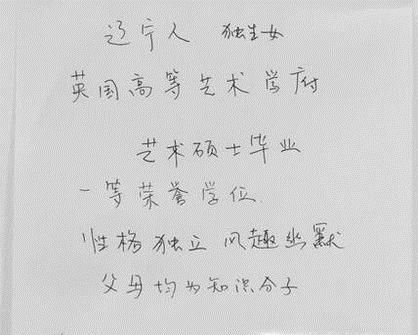 辽宁人 独生女
英国高等艺术学府
艺术硕士毕业
一等荣誉学位.
性格独立 风趣幽默
父母均为知识分子